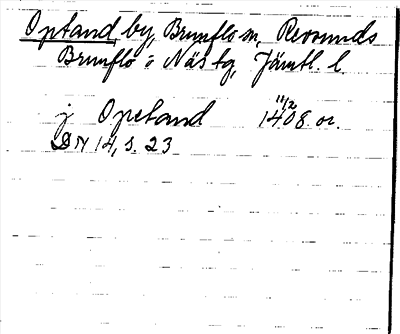 Opland by, Brunflo sn, Revsunds
Brunflo o Näs tg, Jämtl. l.
j Opeland 11/2 1408 or.
DN 14, s. 23